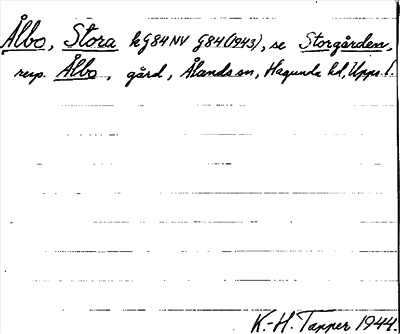 Ålbo, Stora kG84NV G84(1943), se Storgården,
resp. Ålbo, gård, Ålands sn, Hagunda hd, Upps. l.
K.-H. Tapper 1944.